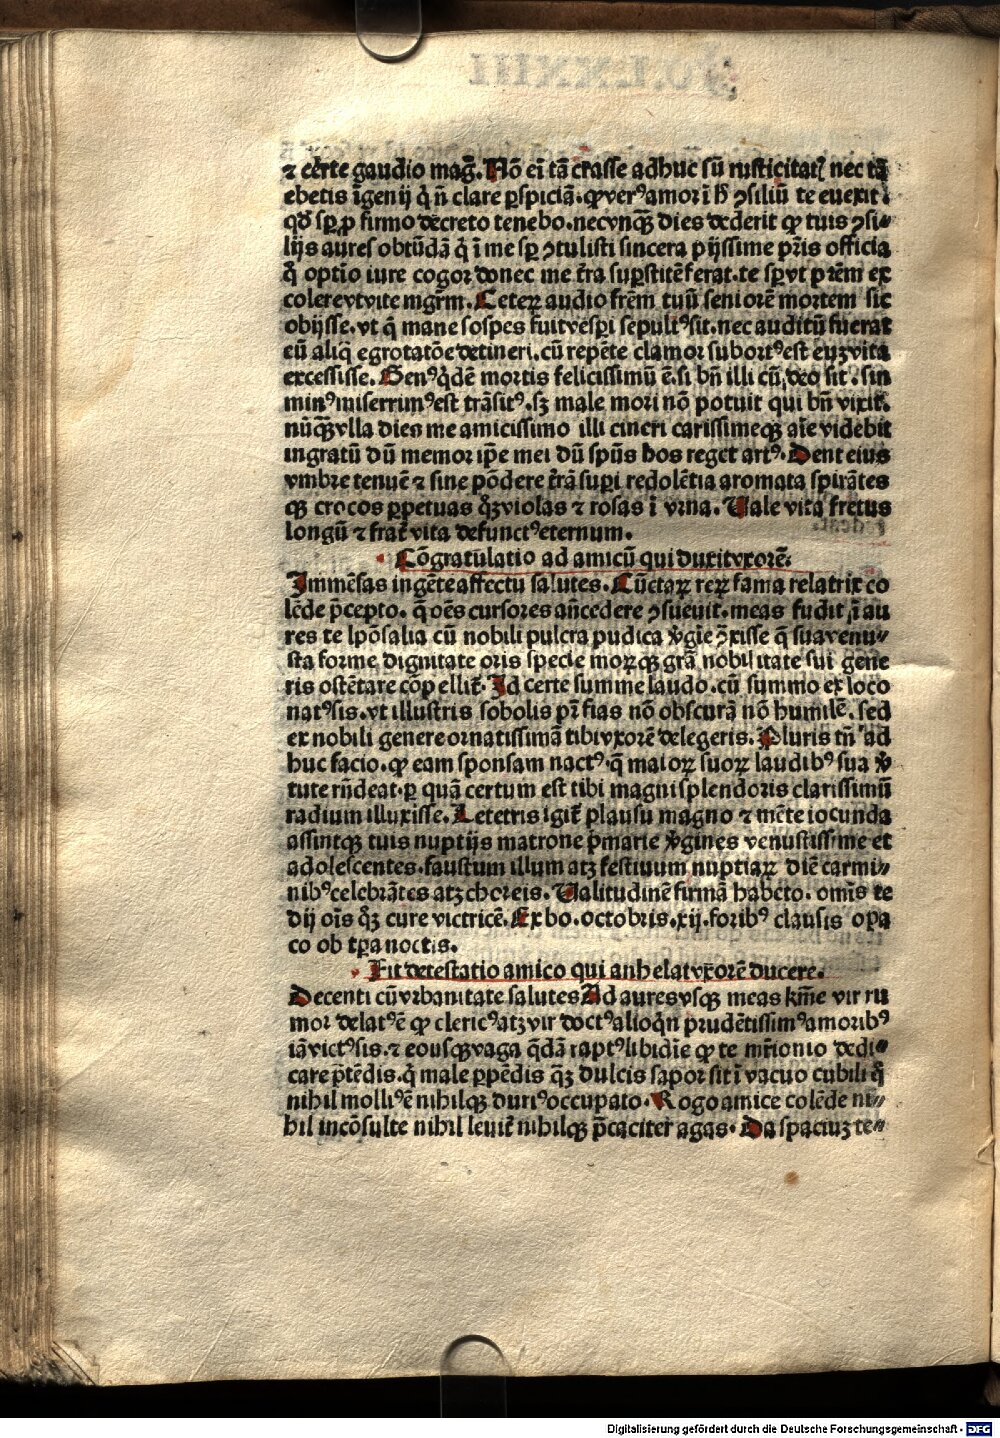 ⁊ cert̉e gaudio mag̃. Nō eī tā crasse adhuc sū rusticitatꝭ nec tā
ebetis īgenij q̇ n̄ clare ꝑspiciā. ꝙ verꝰ amor ī h̄ ꝯsiliū te euexit:
qd̛ sꝑ ꝓ firmo decreto tenebo. necvnqꝫ̄ dies dederit ꝙ tuis ꝯsi⸗
lijs aures obtūdā q̇ ī me sꝑ ꝯtulisti sincera pijssime pr̄is officia
q̇ optīo iure cogor donec me t̄ra suꝑstitē ferat. te sꝑ vt p̄rem ex
colere vt vite mgr̄m. Ceteꝝ audio fr̄em tuū seniorē mortem sic
obijsse. vt q̄ mane sospes fuit vesꝑi sepultꝰ sit. nec auditū fuerat
eū aliq̄ egrotatōe detineri. cū repēte clamor subortꝰ est euꝫ vita
excessisse. Genꝰ q̇dē mortis felicissimū ē. si bn̄ illi cū deo sit. sin
minꝰ miserrimꝰ est trāsitꝰ. sꝫ male mori nō potuit qui bn̄ vixit.
nūqꝫ̄ vlla dies me amicissimo illi cineri carissimeqꝫ aīe videbit
ingratū dū memor ip̄e mei dū spūs hos reget artꝰ. Dent eius
vmbre tenuē ⁊ sine pōdere t̄rā suꝑi redolētia aromata spirātes
qꝫ crocos ꝑpetuas q̊ꝫ violas ⁊ rosas ī vrna. Vale vita fretus
longū ⁊ frat̄ vita defunctꝰ eternum.
Cōgratulatio ad amicū qui duxit vxorē.
Immēsas ingēte affectu salutes. Cūctaꝝ reꝝ fama relatrix co
lēde p̄cepto. q̄ oēs cursores an̄cedere ꝯsueuit. meas fudit ī au
res te spōsalia cū nobili pulcra pudica v̊gīe ꝯ̄xisse q̄ sua venu⸗
sta forme dignitate oris specie moꝝqꝫ gr̄a nobilitate sui gene
ris ostētare cōpellit̄. Id certe summe laudo. cū summo ex loco
natꝰ sis. vt illustris sobolis pr̄ fias nō obscurā nō humilē. sed
ex nobili genere ornatissimā tibi vxorē delegeris. Pluris tn̄ ad
huc facio. ꝙ eam sponsam nactꝰ. q̄ maioꝝ suoꝝ laudibꝰ sua v̊
tute rn̄deat. ꝑ quā certum est tibi magni splendoris clarissimū
radium illuxisse. Letetris igit̄ plausu magno ⁊ mēte iocunda
assintqꝫ tuis nuptijs matrone p̄marie v̊gines venustissime et
adolescentes. faustum illum atꝫ festiuum nuptiaꝝ diē carmi⸗
nibꝰ celebrātes atꝫ choreis. Valitudinē firmā habeto. omīs te
dij oīs q̊ꝫ cure victricē. Ex bo. octobris. xij. foribꝰ clausis opa
co ob tꝑa noctis.
Fit detestatio amico qui anhelat vxorē ducere.
Decenti cū vrbanitate salutes Ad aures vsqꝫ meas km̄e vir ru
mor delatꝰ ē ꝙ clericꝰ atꝫ vir doctꝰ alioq̇n prudētissimꝰ amoribꝰ
iā victꝰ sis. ⁊ eousqꝫ vaga q̄dā raptꝰ libidīe ꝙ te mr̄ionio dedi⸗
care p̄tēdis. q̇ male ꝑpēdis q̄ꝫ dulcis sapor sit ī vacuo cubili q̇
nihil molliꝰ ē nihilqꝫ duriꝰ occupato. Rogo amice colēde ni⸗
hil incōsulte nihil leuit̄ nihilqꝫ p̄caciter agas. Da spaciuꝫ te⸗
Digitalisierung gefördert durch die Deutsche Forschungsgemeinschaft - DFG